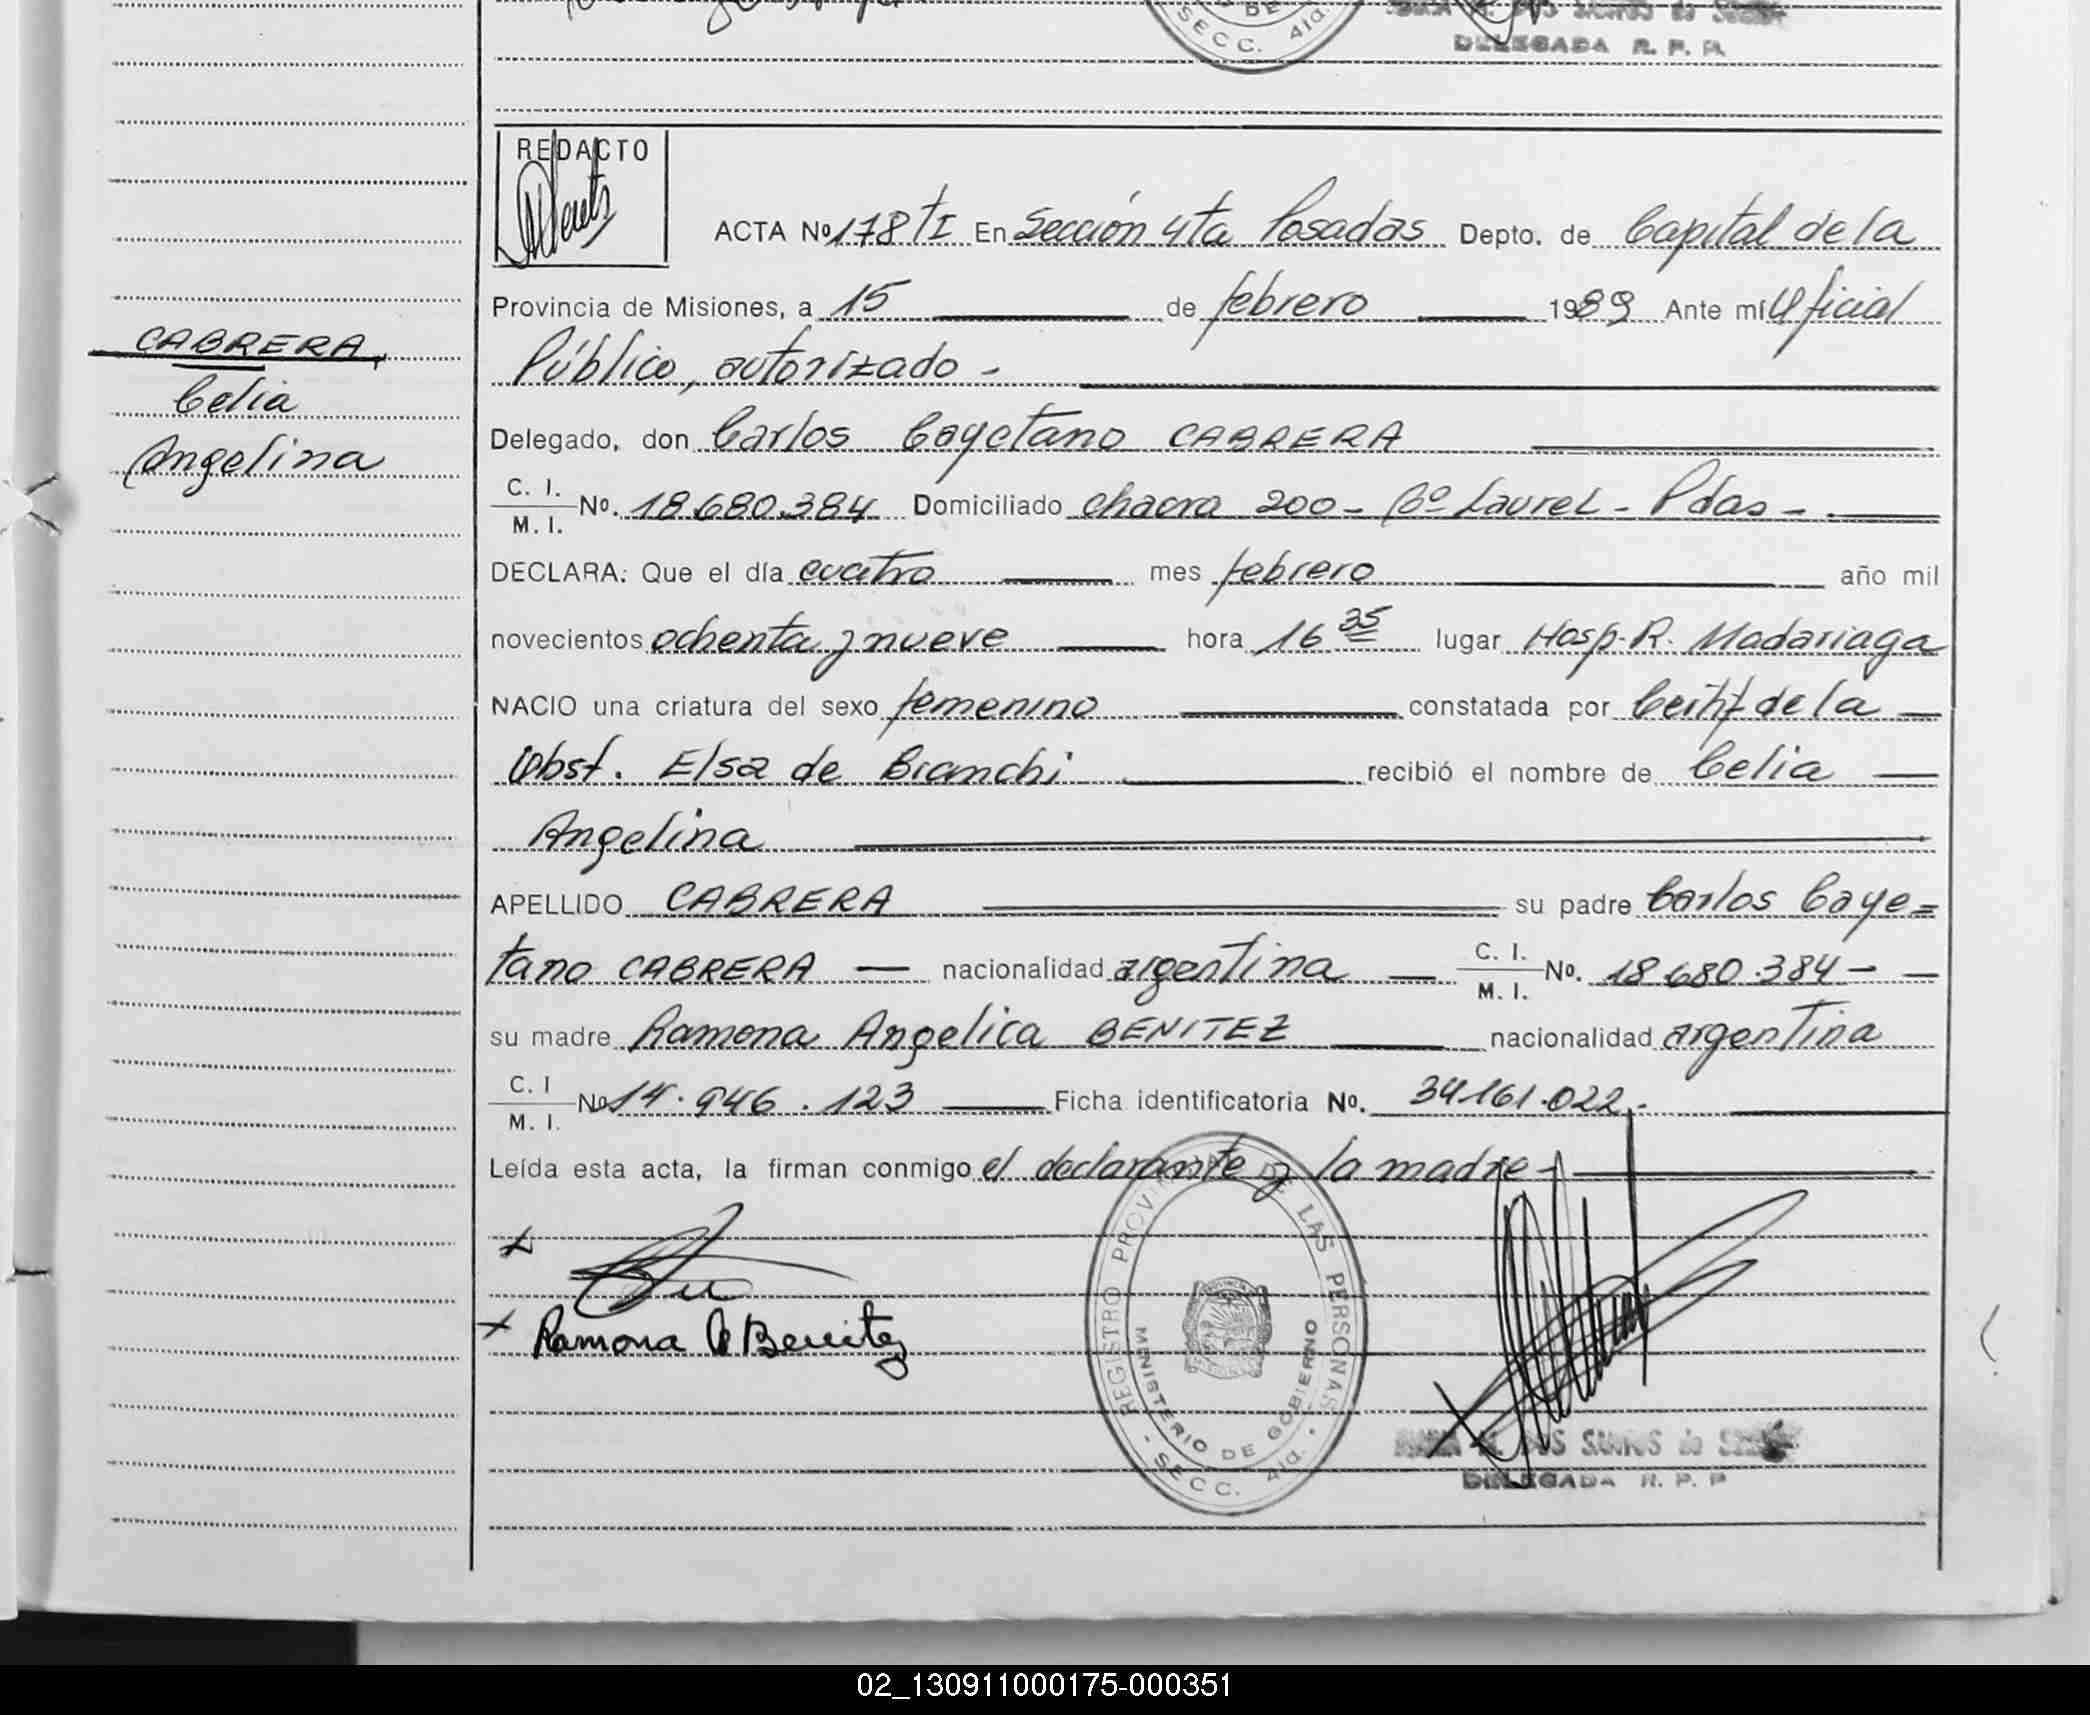 SECC. 4ta.
DELEGADA R. P. P.
REDACTO
ACTA Nº 178 TI En Sección 4ta Posadas Depto. de Capital de la
Provincia de Misiones, a 15 de febrero 1989 Ante mí Oficial
Público, autorizado -
CABRERA,
Celia
Angelina
Delegado, don Carlos Cayetano CABRERA
C. I.
M. I. Nº. 18.680.384 Domiciliado chacra 200 - Bº Laurel - Pdas -
DECLARA: Que el día cuatro mes febrero año mil
novecientos ochenta y nueve hora 16 35 lugar Hosp. R. Madariaga
NACIO una criatura del sexo femenino constatada por Certif de la
Obst. Elsa de Bianchi recibió el nombre de Celia
Angelina
APELLIDO CABRERA su padre Carlos Caye=
tano CABRERA nacionalidad argentina C. I.
M. I. Nº. 18.680.384 -
su madre Ramona Angelica BENITEZ nacionalidad argentina
C. I
M. I. Nº 14.946.123 Ficha identificatoria Nº. 34.161.022.-
Leída esta acta, la firman conmigo el declarante y la madre -
x
x Ramona A Benitez
REGISTRO PROVINCIAL DE LAS PERSONAS
MINISTERIO DE GOBIERNO
- SECC. 4ta. -
DOS SANTOS de
DELEGADA R. P. P
02_130911000175-000351